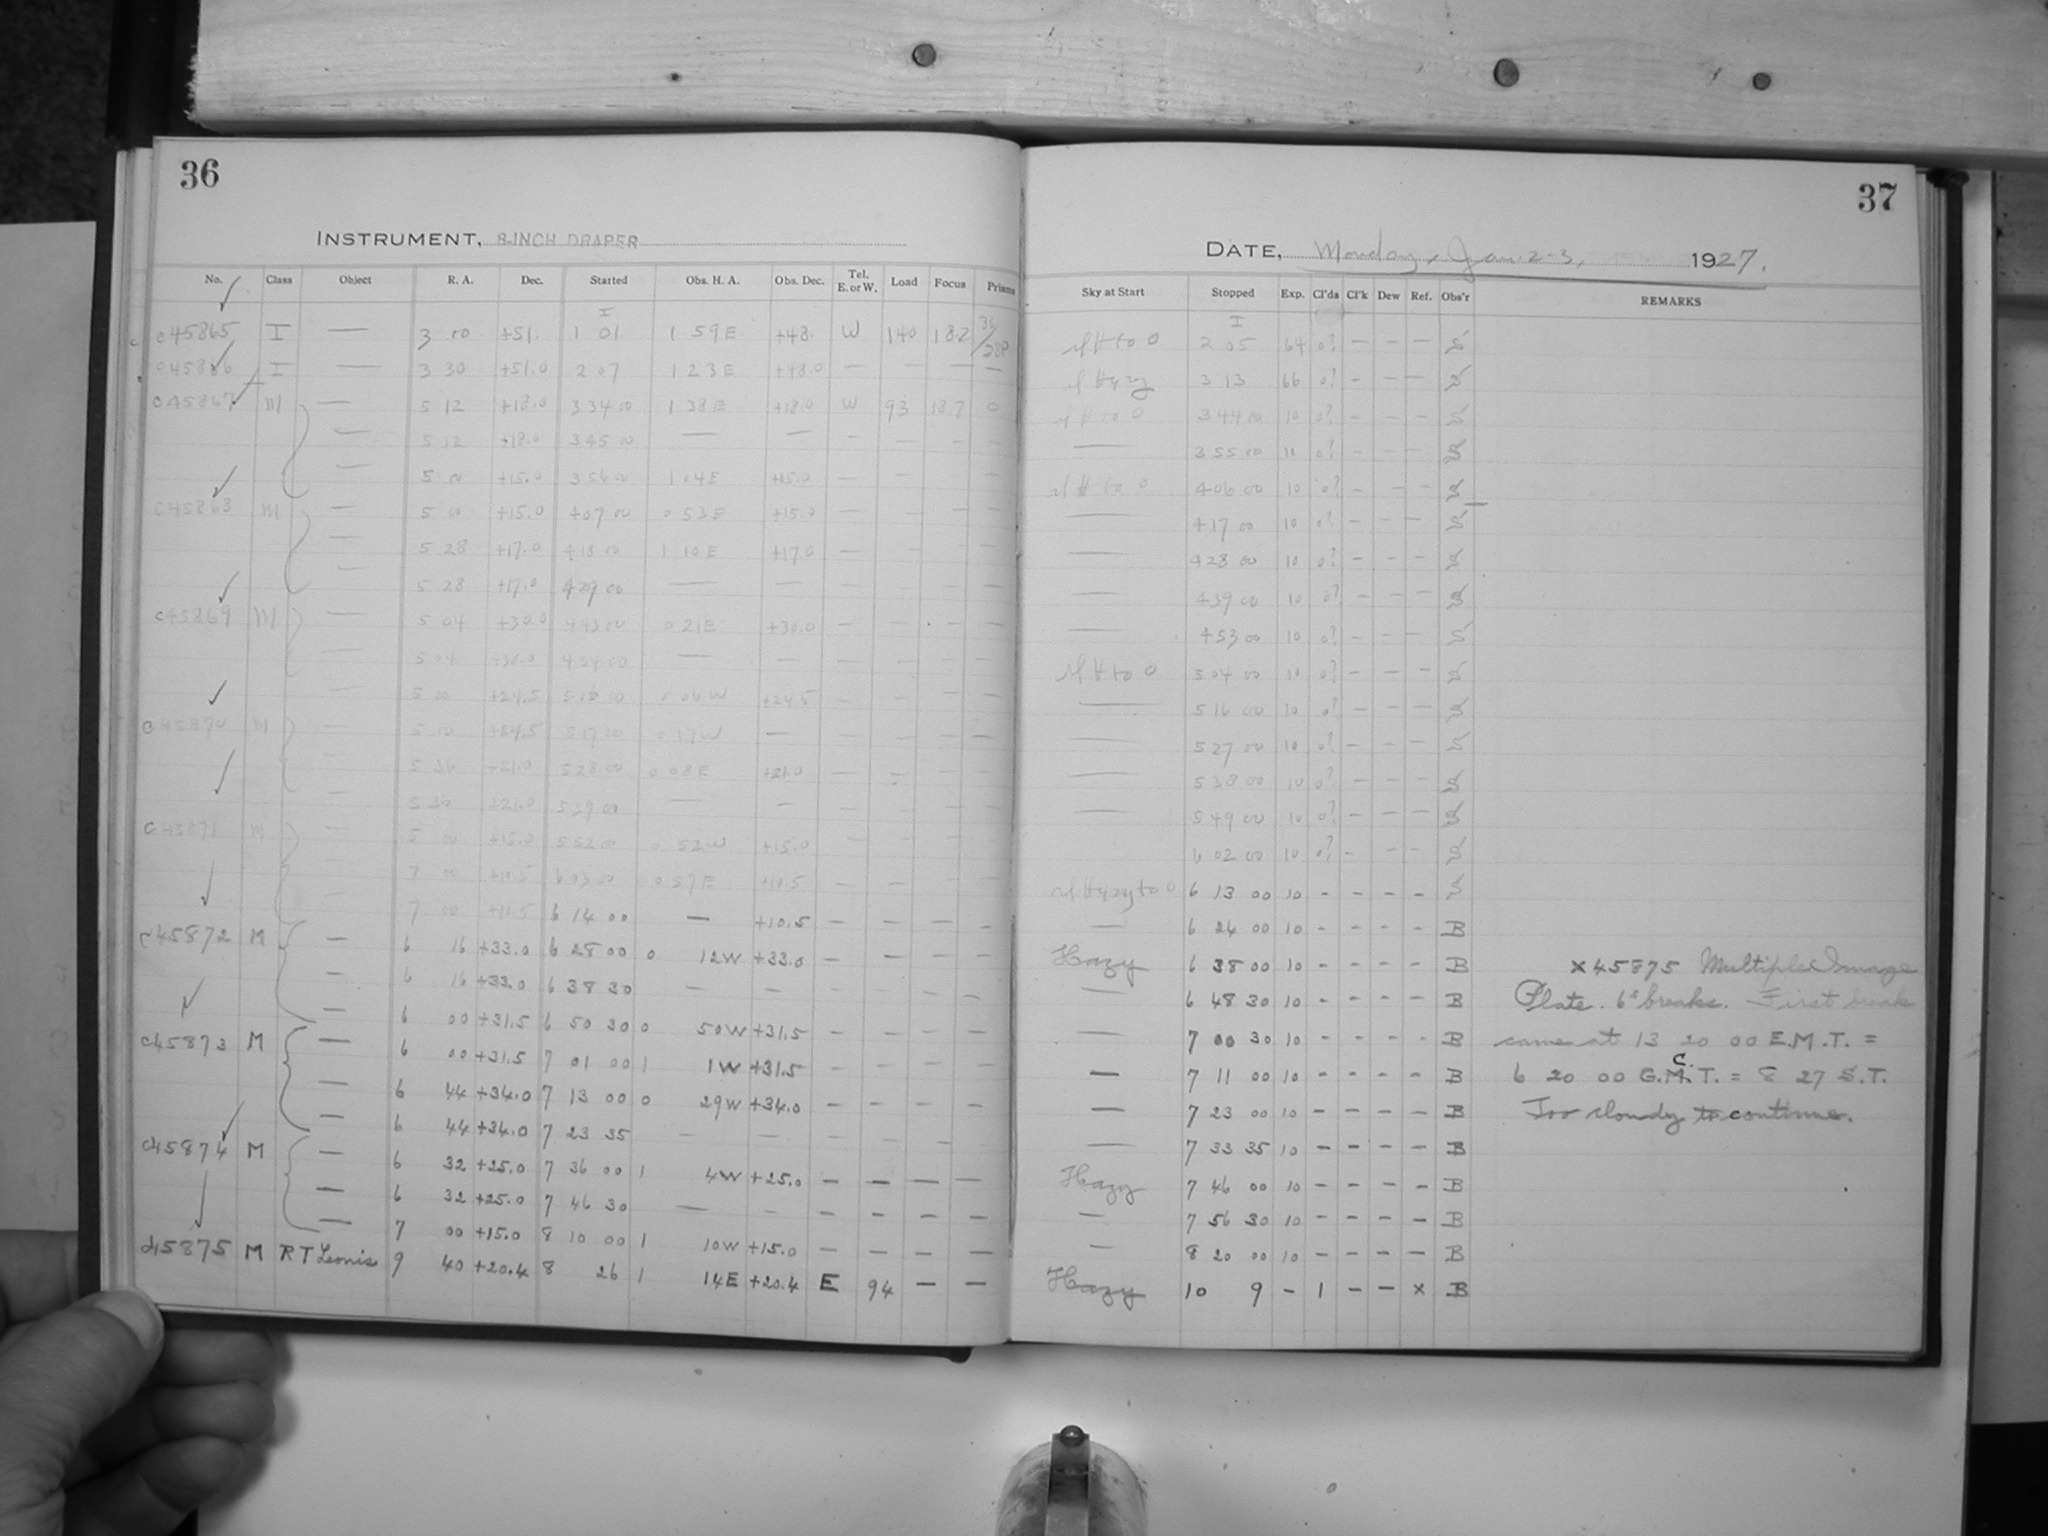 36
INSTRUMENT, 8-INCH DRAPER
No. Class Object R. A. Dec. Started Obs. H. A. Obs. Dec. Tel. E. or W. Load Focus Prisms
I
c45865 I — 3 00 +51. 1 01 1 59 E +48. W 140 18.2
c45866 I — 3 30 +51.0 2 07 1 23 E +48.0 — — — —
c45867 M — 5 12 +18.0 3 34 00 1 38 E +18.0 W 93 18.7 0
— 5 12 +18.0 3 45 00 — — — — — —
— 5 00 +15.0 3 56 00 1 04 E +15.0 — — — —
c45868 M — 5 00 +15.0 4 07 00 0 53 E +15.0 — — — —
— 5 28 +17.0 4 18 00 1 10 E +17.0 — — — —
— 5 28 +17.0 4 29 00 — — — — — —
c45869 M — 5 04 +30.0 4 43 00 0 21 E +30.0 — — — —
— 5 04 +30.0 4 54 00 — — — — — —
— 5 00 +24.5 5 06 00 0 06 W +24.5 — — — —
c45870 M — 5 00 +24.5 5 17 00 0 17 W — — — — —
— 5 36 +21.0 5 28 00 0 08 E +21.0 — — — —
— 5 36 +21.0 5 39 00 — — — — — —
c45871 M — 5 00 +15.0 5 52 00 0 52 W +15.0 — — — —
— 7 00 +10.5 6 03 00 0 57 E +10.5 — — — —
— 7 00 +10.5 6 14 00 — +10.5 — — — —
c45872 M — 6 16 +33.0 6 28 00 0 12 W +33.0 — — — —
— 6 16 +33.0 6 38 30 — — — — — —
— 6 00 +31.5 6 50 30 0 50 W +31.5 — — — —
c45873 M — 6 00 +31.5 7 01 00 1 1 W +31.5 — — — —
— 6 44 +34.0 7 13 00 0 29 W +34.0 — — — —
— 6 44 +34.0 7 23 35 — — — — — —
c45874 M — 6 32 +25.0 7 36 00 1 4 W +25.0 — — — —
— 6 32 +25.0 7 46 30 — — — — — —
— 7 00 +15.0 8 10 00 1 10 W +15.0 — — — —
c45875 M RT Leonis 9 40 +20.4 8 26 1 14 E +20.4 E 94 — —
37
DATE, Monday, Jan. 2-3, 1927.
Sky at Start Stopped Exp. Cl'ds Cl'k Dew Ref. Obs'r REMARKS
I
to 0 2 05 64 0? — — — S
3 13 66 0? — — — S
to 0 3 44 00 10 0? — — — S
— 3 55 00 10 0? — — — S
to 0 4 06 00 10 0? — — — S
— 4 17 00 10 0? — — — S
— 4 28 00 10 0? — — — S
— 4 39 00 10 0? — — — S
— 4 53 00 10 0? — — — S
to 0 5 04 00 10 0? — — — S
— 5 16 00 10 0? — — — S
— 5 27 00 10 0? — — — S
— 5 38 00 10 0? — — — S
— 5 49 00 10 0? — — — S
6 02 00 10 0? — — — S
to 0 6 13 00 10 — — — — S
— 6 24 00 10 — — — — B
Hazy 6 38 00 10 — — — — B
— 6 48 30 10 — — — — B
— 7 00 30 10 — — — — B
— 7 11 00 10 — — — — B
— 7 23 00 10 — — — — B
— 7 33 35 10 — — — — B
Hazy 7 46 00 10 — — — — B
— 7 56 30 10 — — — — B
— 8 20 00 10 — — — — B
Hazy 10 9 — 1 — — x B
x 45875 Multiple Image
Plate. 6 breaks. First break
came at 13 20 00 E.M.T. =
6 20 00 G.C.T. = 8 27 S.T.
Too cloudy to continue.